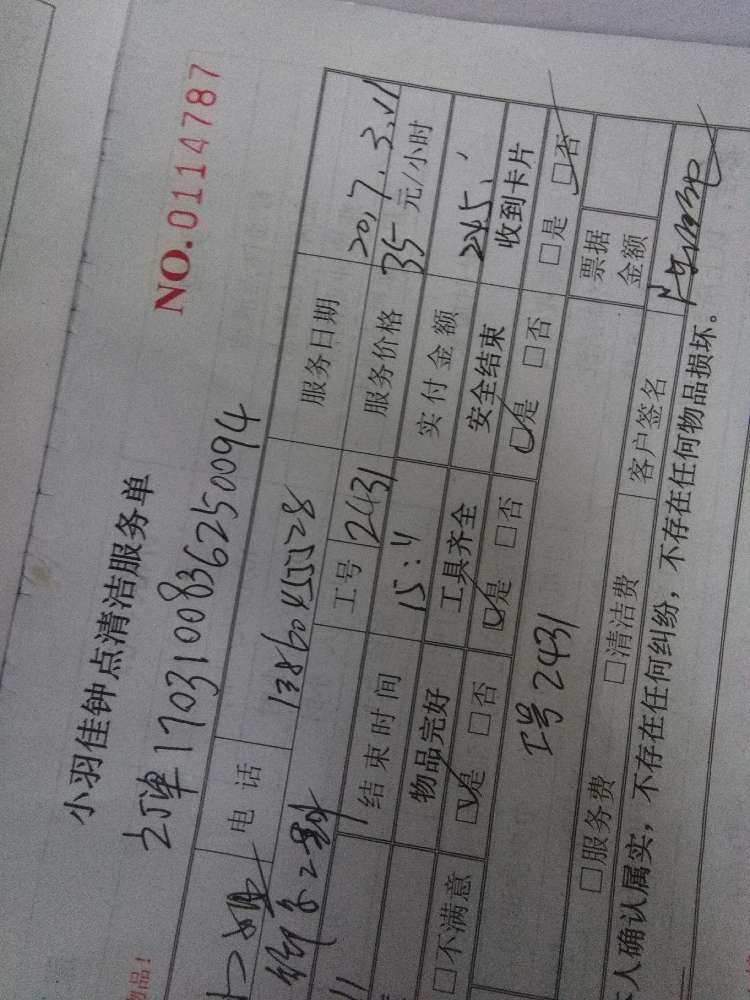 小羽佳钟点清洁服务单
NO.0114787
订单170310083625 0094
电话 服务日期 2017.3.11
工号 2431 服务价格 35 元/小时
结束时间 15:4 实付金额 245.
物品完好 工具齐全 安全结束 收到卡片
□不满意 ☑是 □否 ☑是 □否 ☑是 □否 □是 ☑否
工号2431 票据金额
□服务费 □清洁费 客户签名
人确认属实，不存在任何纠纷，不存在任何物品损坏。
物品！